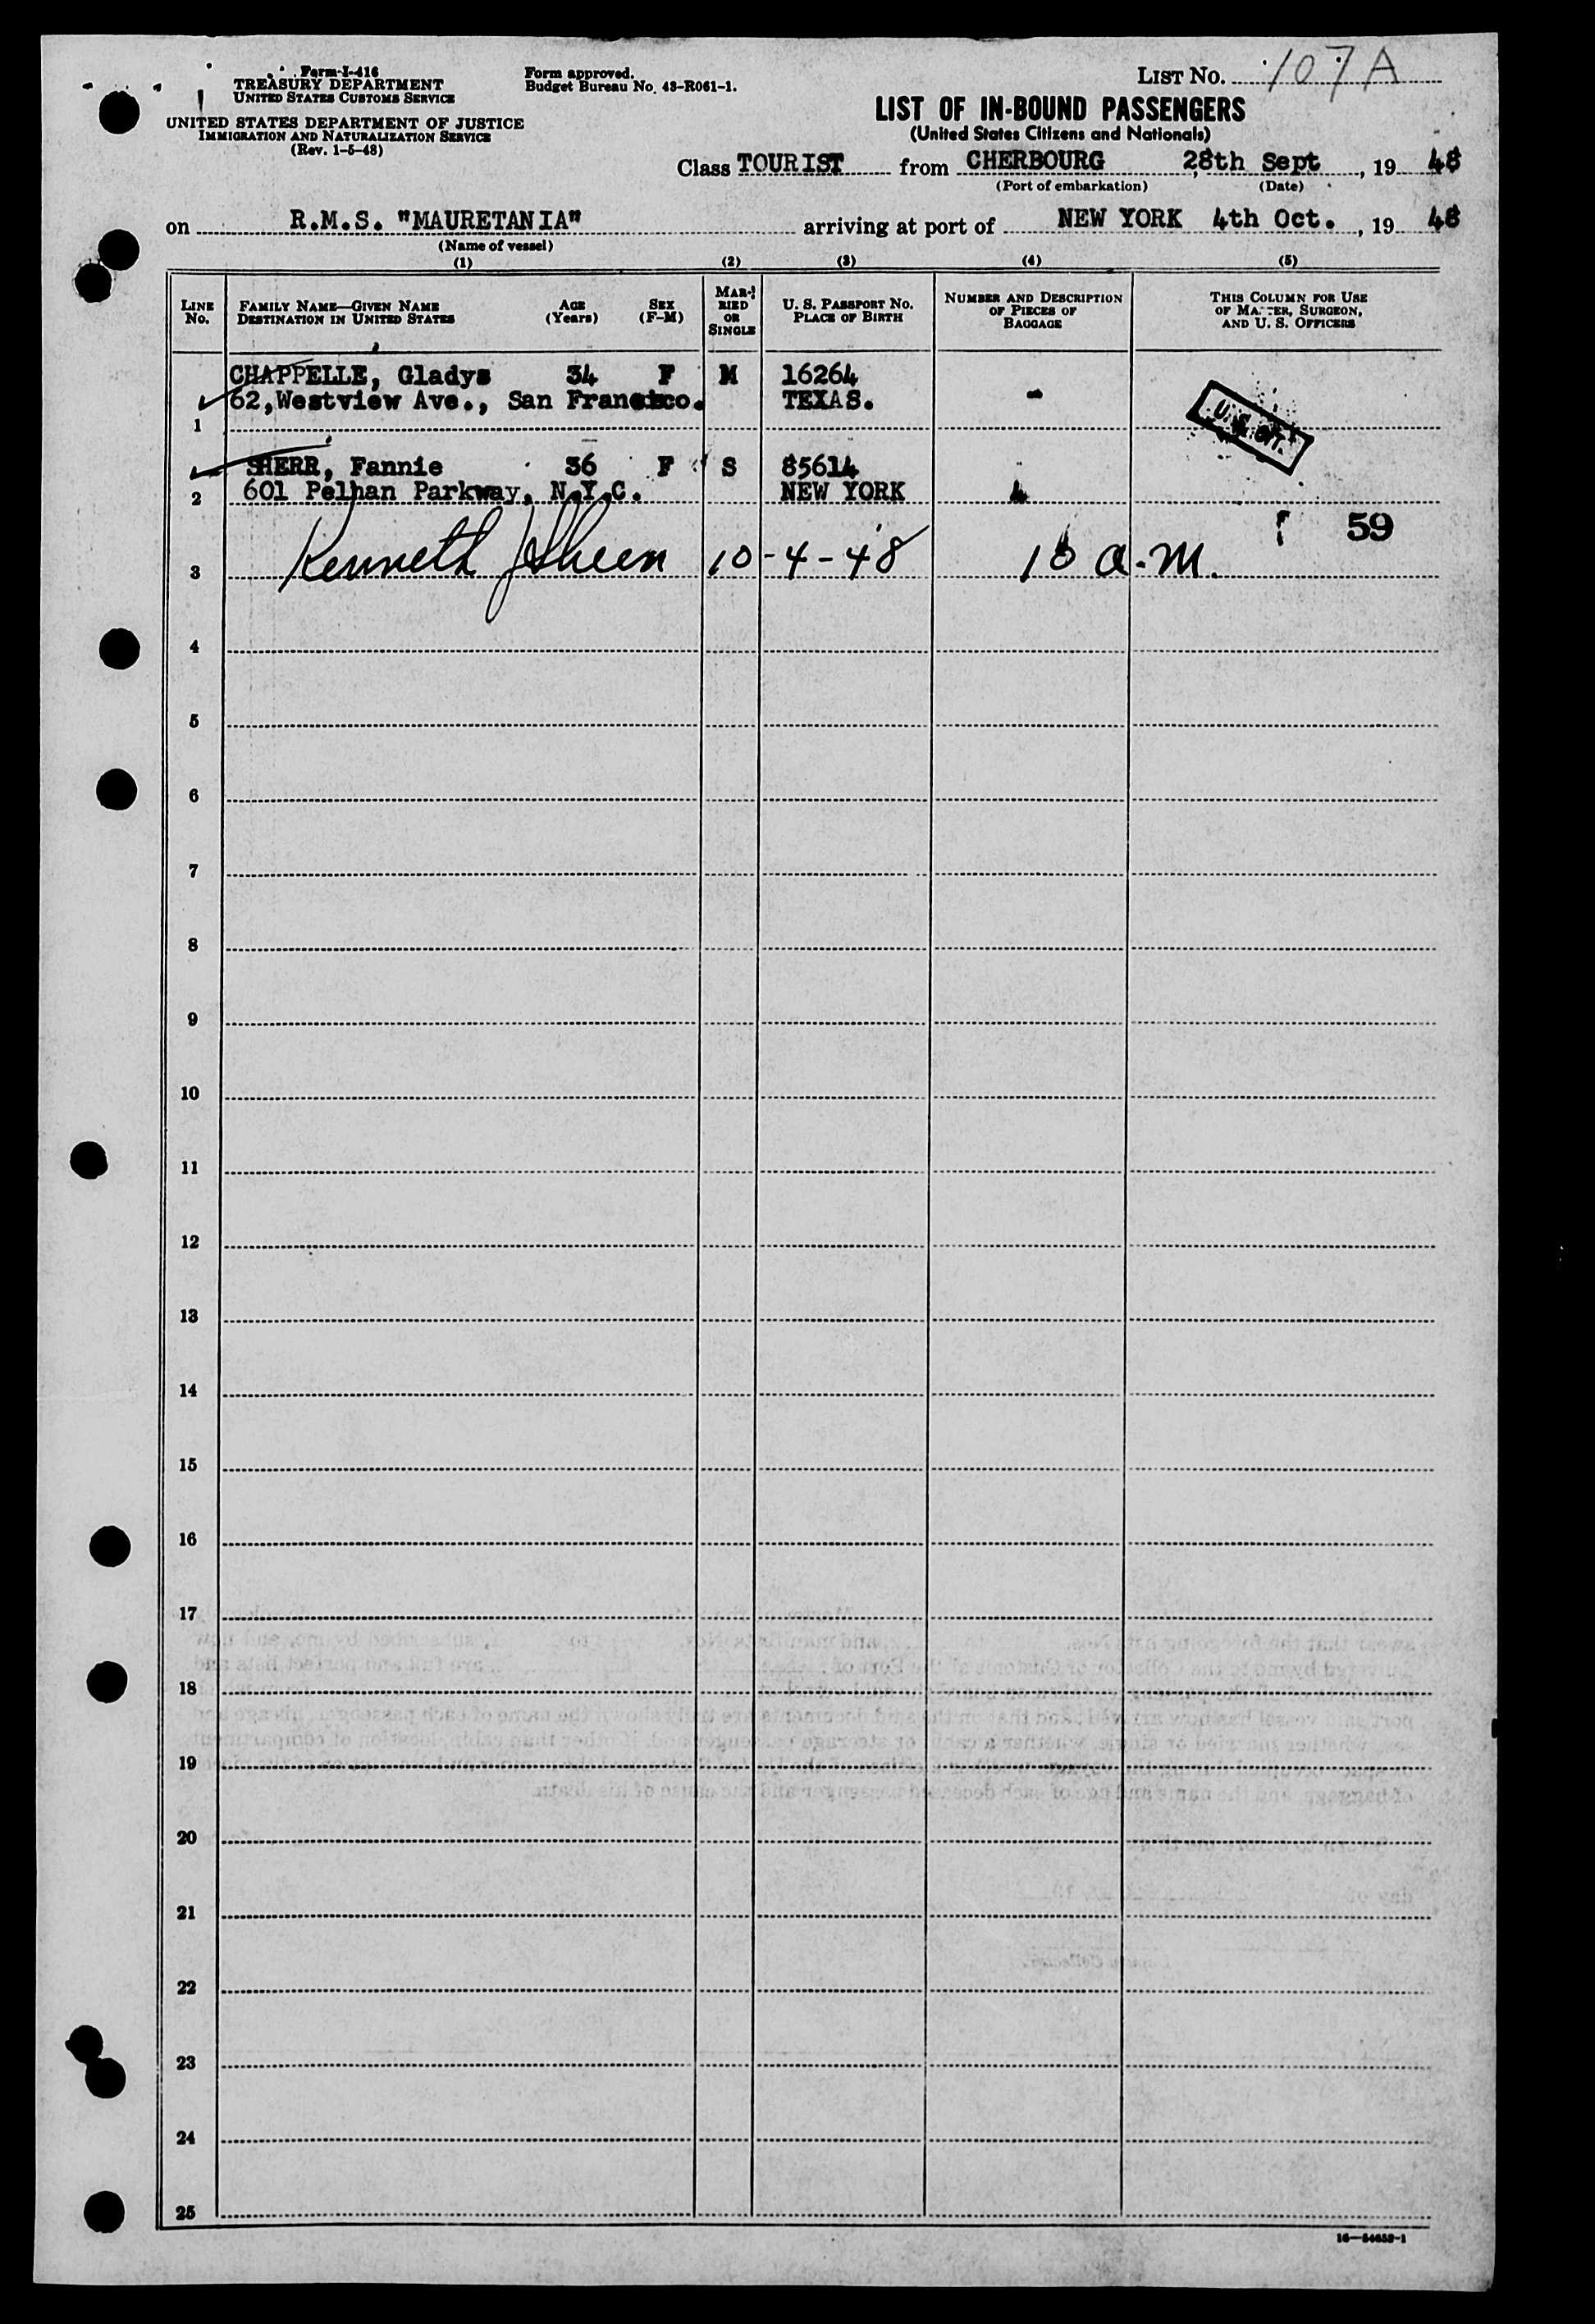 Form I-416
TREASURY DEPARTMENT
UNITED STATES CUSTOMS SERVICE
UNITED STATES DEPARTMENT OF JUSTICE
IMMIGRATION AND NATURALIZATION SERVICE
(Rev. 1-5-48)
Form approved.
Budget Bureau No. 43-R061-1.
LIST NO. 107A
LIST OF IN-BOUND PASSENGERS
(United States Citizens and Nationals)
Class TOURIST from CHERBOURG 28th Sept, 19 48
(Port of embarkation) (Date)
on R.M.S. "MAURETANIA" arriving at port of NEW YORK 4th Oct., 19 48
(Name of vessel)
(1) (2) (3) (4) (5)
LINE No.
FAMILY NAME—GIVEN NAME
DESTINATION IN UNITED STATES
AGE
(Years)
SEX
(F-M)
MAR-
RIED
OR
SINGLE
U. S. PASSPORT NO.
PLACE OF BIRTH
NUMBER AND DESCRIPTION
OF PIECES OF
BAGGAGE
THIS COLUMN FOR USE
OF MASTER, SURGEON,
AND U. S. OFFICERS
CHAPPELLE, Gladys 34 F M 16264
62, Westview Ave., San Francisco. TEXAS. -
1
U.S. CIT.
SHERR, Fannie 36 F S 85614
601 Pelhan Parkway, N.Y.C. NEW YORK
2
59
3 Kenneth 10-4-48 10 a.m.
4
5
6
7
8
9
10
11
12
13
14
15
16
17
18
19
20
21
22
23
24
25